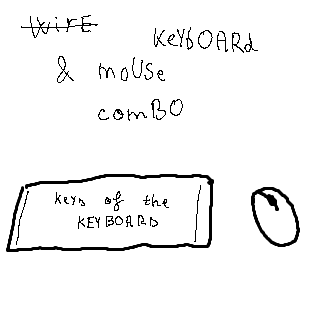 WiFE KeYbOARd
& moUSe
comBO
Keys of the
KEYBOARD